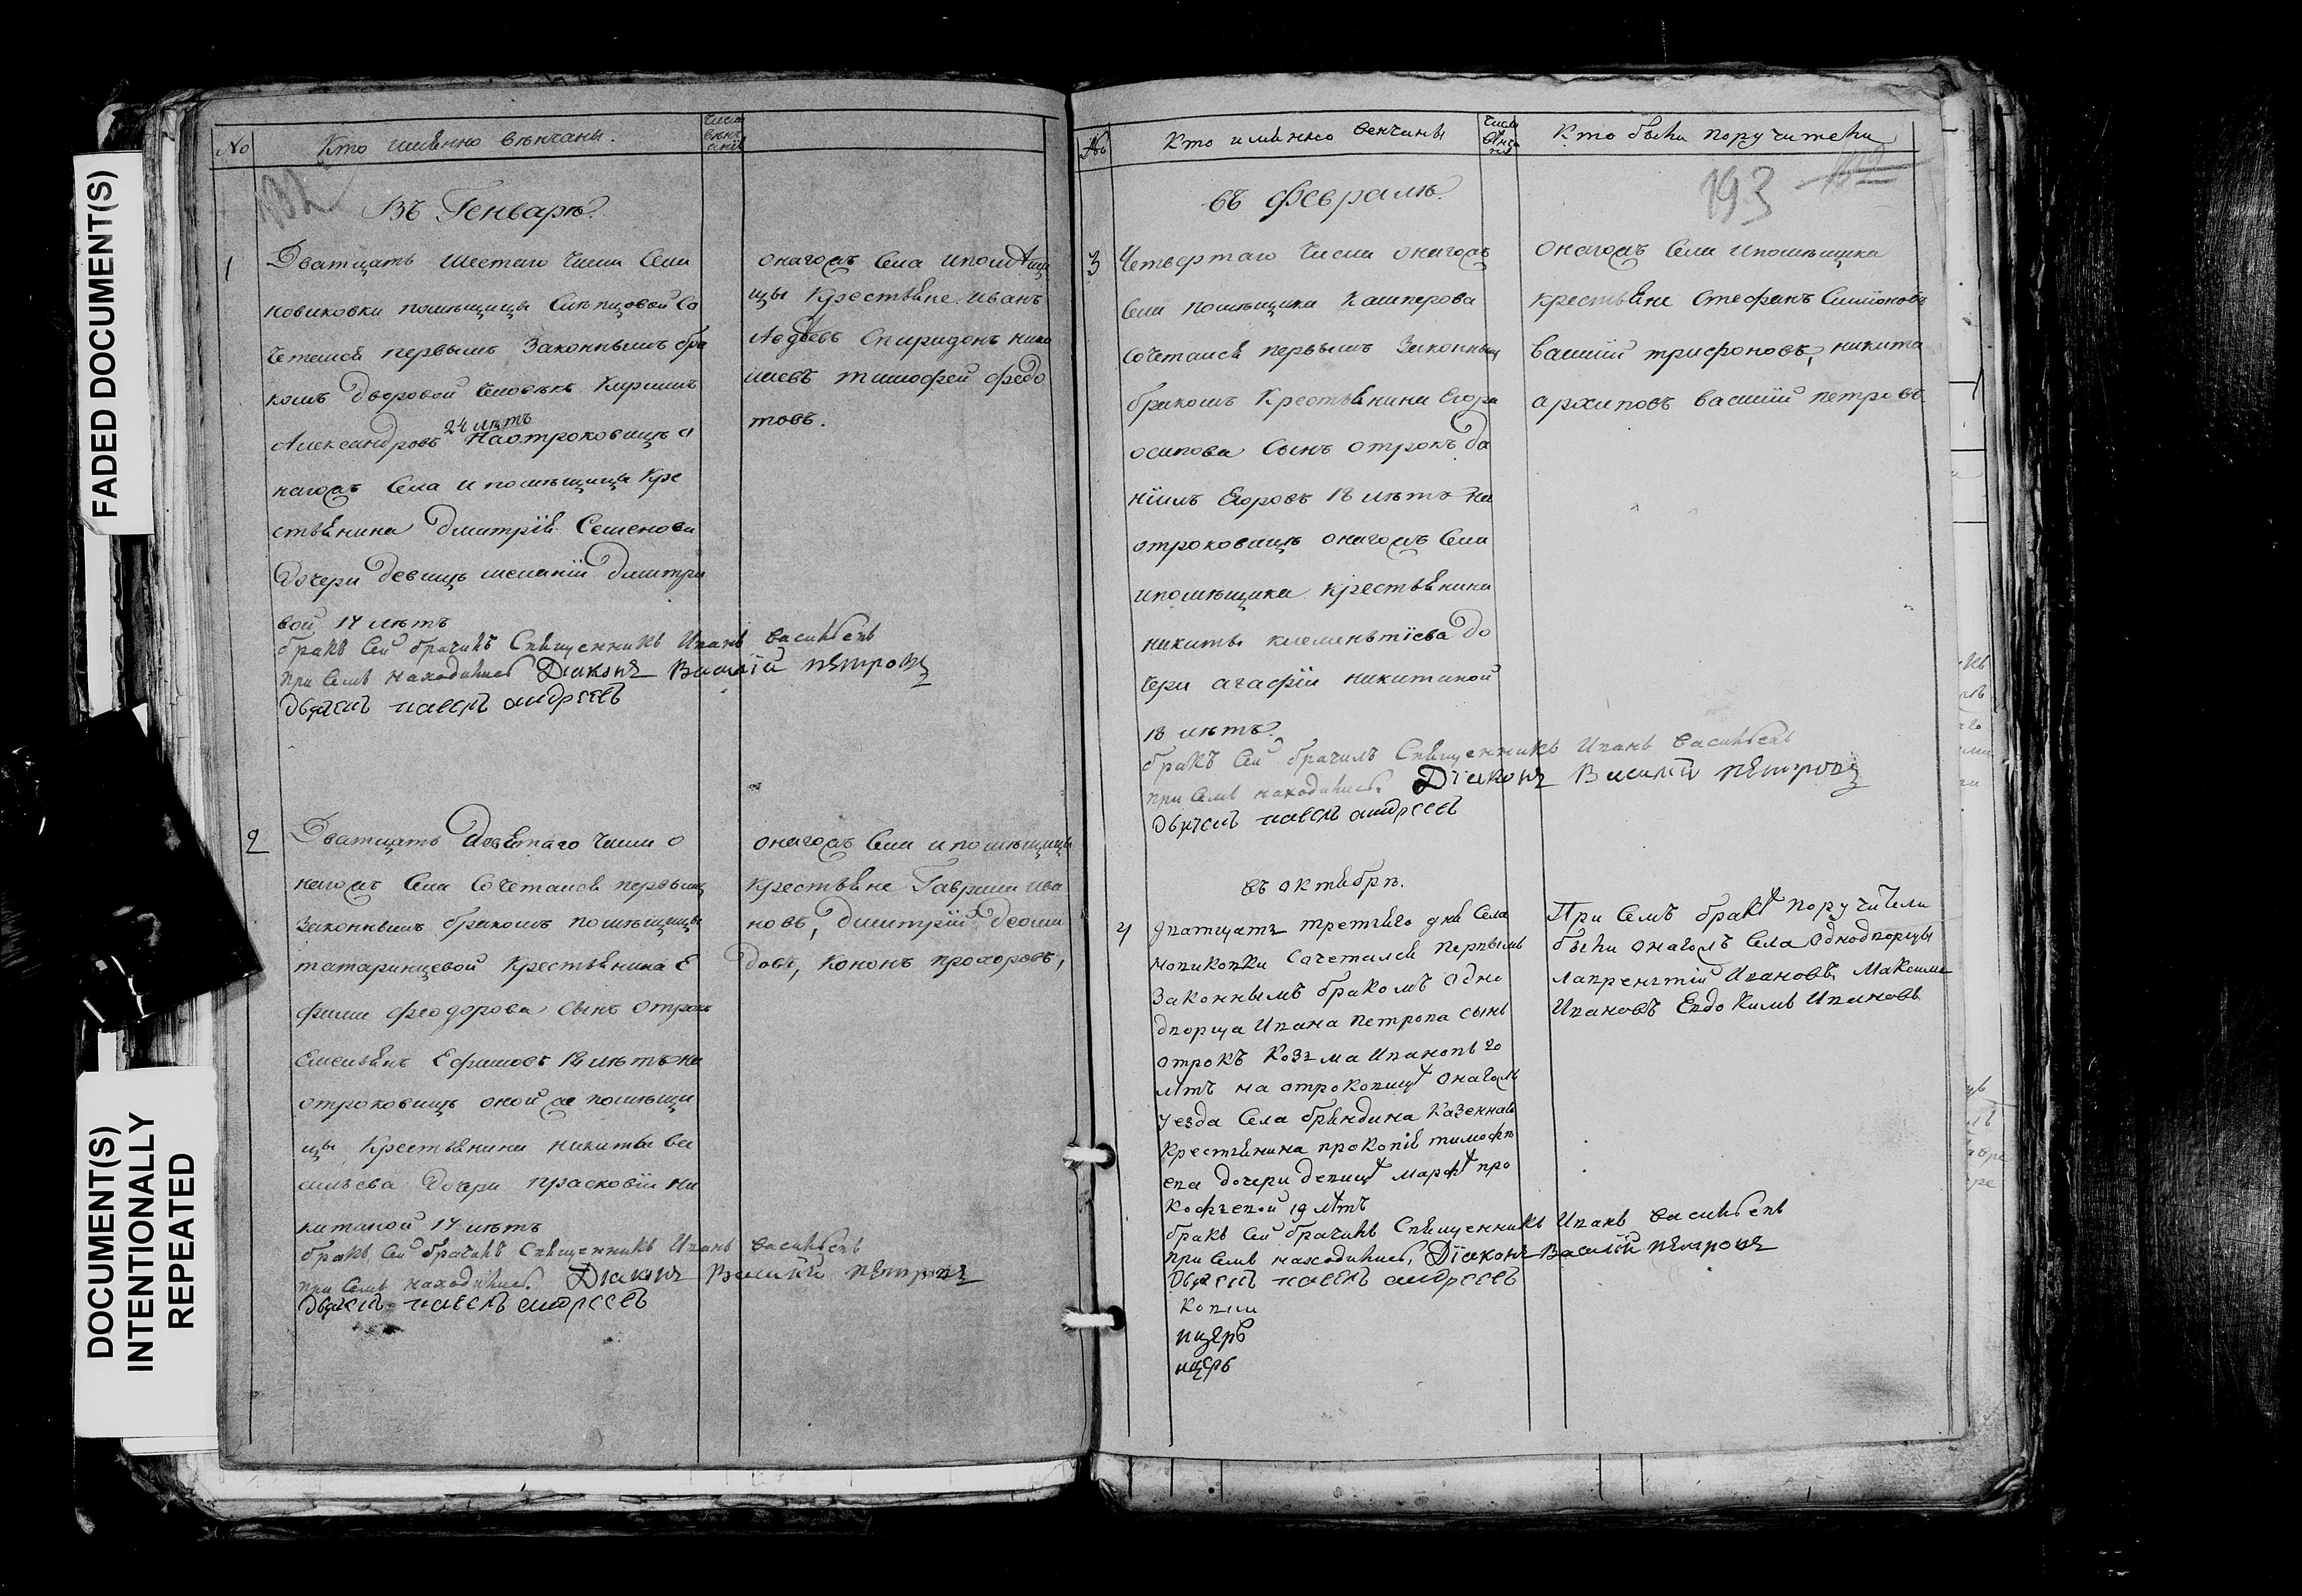 FADED DOCUMENT(S)
DOCUMENT(S)
INTENTIONALLY
REPEATED
No
Кто имѣнно вѣнчаны.
Числа
вѣнч
анїя
192
Въ Генварѣ.
1
Дватцать шестаго числа Села
новиковки помѣщицы Слѣпцовой Со
четался первымъ Законнымъ бра
комъ дворовой человѣкъ Кирилъ
24 лѣтъ
Александровъ на отроковицѣ о
нагожъ Села и помѣщицы Кре
стьянина Дмитрїя Семенова
дочери девицѣ меланїи дмитри
вой 17 лѣтъ
бракъ сей брачилъ Священникъ Иванъ Васильевъ
при семъ находились Дїаконъ Василїй пѣтровъ
Дьячекъ павелъ андреевъ
онагожъ Села и помѣщи
цы Крестьяне Иванъ
Авдѣевъ Спиридонъ нико
лаевъ тимофей федо
товъ.
2
Дватцать девятаго числа о
нагожъ Села Сочетался первымъ
законнымъ бракомъ помѣщицы
татаринцевой Крестьянина Е
фима феодорова сынъ отрокъ
Емельянъ Ефимовъ 18 лѣтъ на
отроковицѣ оной же помѣщи
цы Крестьянина никиты ва
сильева дочери прасковїи ни
китиной 17 лѣтъ
бракъ сей брачилъ Священникъ Иванъ Васильевъ
при семъ находились Дїаконъ Василїй пѣтровъ
Дьячекъ павелъ андреевъ
онагожъ Села и помѣщицы
крестьяне Гаврила ива
новъ, дмитрїй деоми
довъ, Кононъ прохоровъ,
№
Кто имѣнно венчаны
Числа
вѣнча
нія
Кто были поручители
193
въ Февралѣ.
3
Четвертаго числа онагожъ
Села помѣщика Кашперова
сочетался первымъ Законнымъ
бракомъ Крестьянина Егора
осипова Сынъ отрокъ да
нїилъ Егоровъ 18 лѣтъ на
отроковицѣ онагожъ Села
и помѣщика крестьянина
никиты клементїева до
чери агафїи никитиной
18 лѣтъ.
бракъ сей брачилъ Священникъ Иванъ Васильевъ
при семъ находились. Дїаконъ Василїй пѣтровъ
Дьячекъ павелъ андреевъ
онагожъ Села и помѣщика
крестьяне Стефанъ Симїоновъ
василїй трифоновъ, никита
архиповъ василїй петровъ.
въ октябрѣ.
4
дватцать третьяго дня Села
новиковки сочетался первымъ
Законнымъ бракомъ одно
дворца Ивана петрова сынъ
отрокъ Козьма Ивановъ 20
лѣтъ на отроковицѣ онагожъ
уезда Села бряндина Казеннаго
Крестьянина прокопїя тимофѣ
ева дочери девицѣ марфѣ про
кофьевой 19 лѣтъ
бракъ сей брачилъ Священникъ Иванъ Васильевъ
при семъ находились, Дїаконъ Василїй пѣтровъ
Дьячекъ павелъ андреевъ
При семъ бракѣ поручители
были онагожъ Села однодворцы
лаврентїй Ивановъ, Максимъ
Ивановъ Евдокимъ Ивановъ